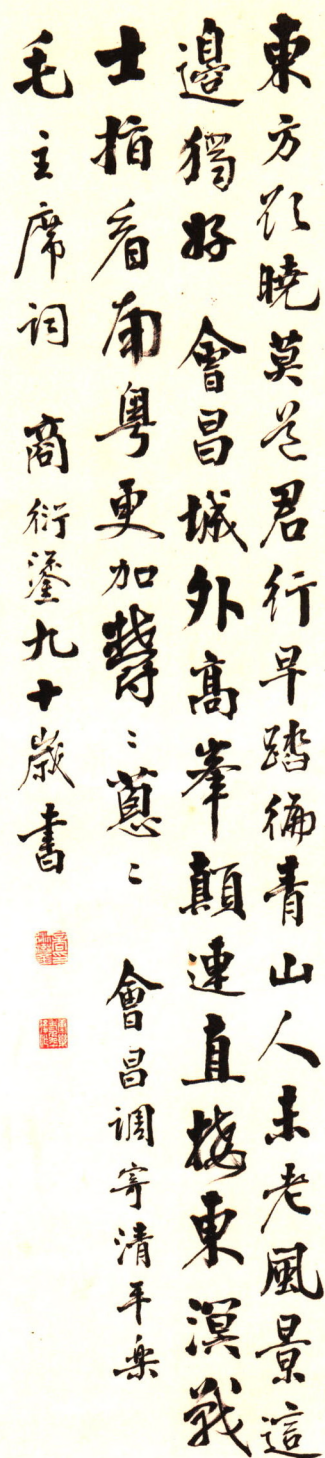 東方欲曉莫道君行早踏徧青山人未老風景這
邊獨好會昌城外高峯顛連直接東溟戰
士指看南粵更加鬱〻蔥〻會昌調寄清平樂
毛主席詞商衍鎏九十歲書